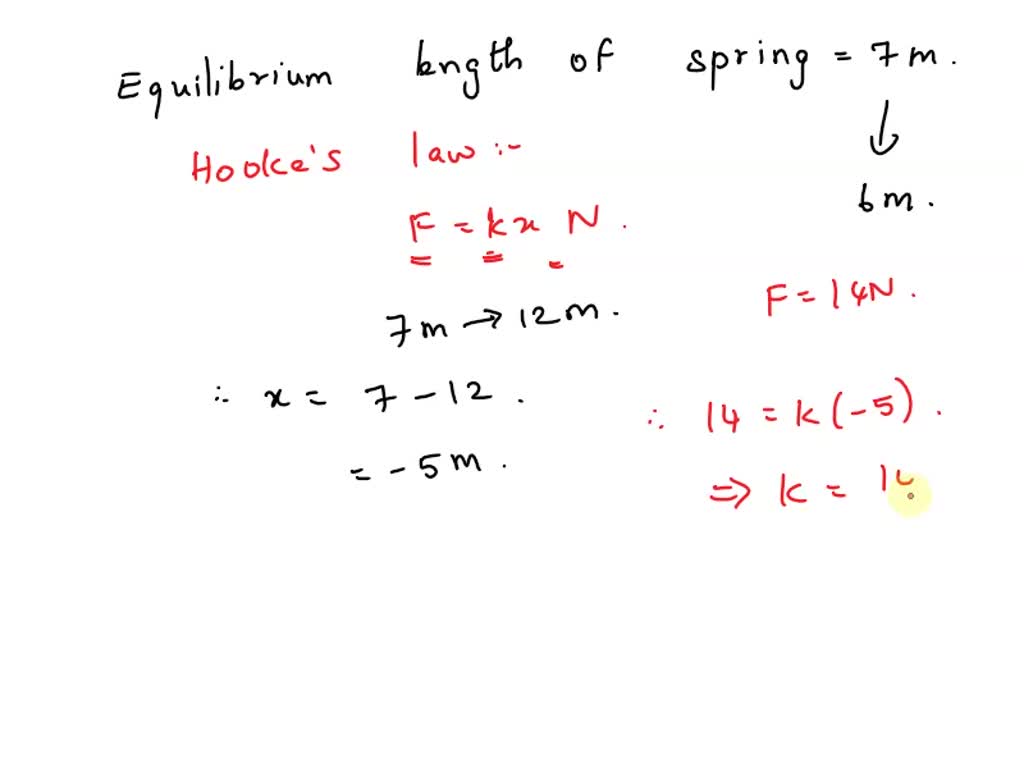 Equilibrium length of spring = 7m.
↓
6m.
Hooke's law :-
F = kx N.
F = 14N.
7m → 12m.
∴ x = 7 - 12.
= -5m.
∴ 14 = k(-5).
⇒ k = 14